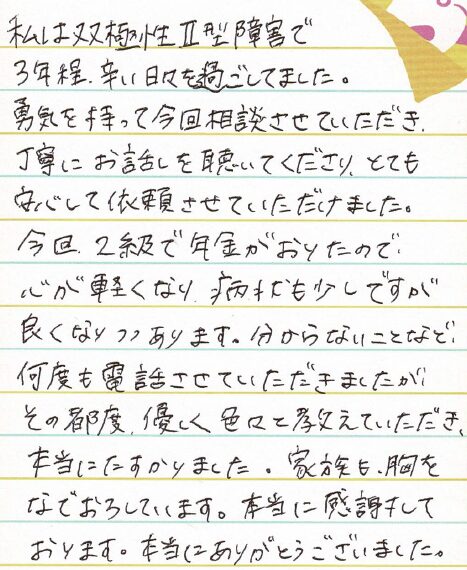 私は双極性Ⅱ型障害で
3年程、辛い日々を過ごしてました。
勇気を持って今回相談させていただき、
丁寧にお話しを聴いてくださり、とても
安心して依頼させていただけました。
今回、2級で年金がおりたので、
心が軽くなり、病状も少しですが
良くなりつつあります。分からないことなど、
何度も電話させていただきましたが、
その都度、優しく色々と教えていただき、
本当にたすかりました。家族も、胸を
なでおろしています。本当に感謝して
おります。本当にありがとうございました。